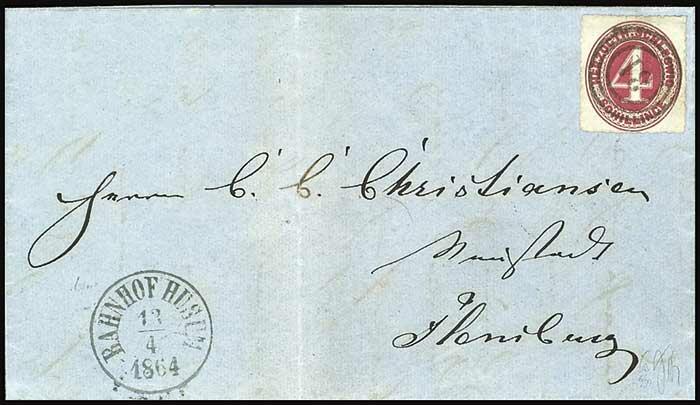 HERZOGTH. SCHLESWIG
4
SCHILLINGE
Herrn C. C. Christiansen
Neustadt
Flensburg
BAHNHOF HUSUM
13
4
1864